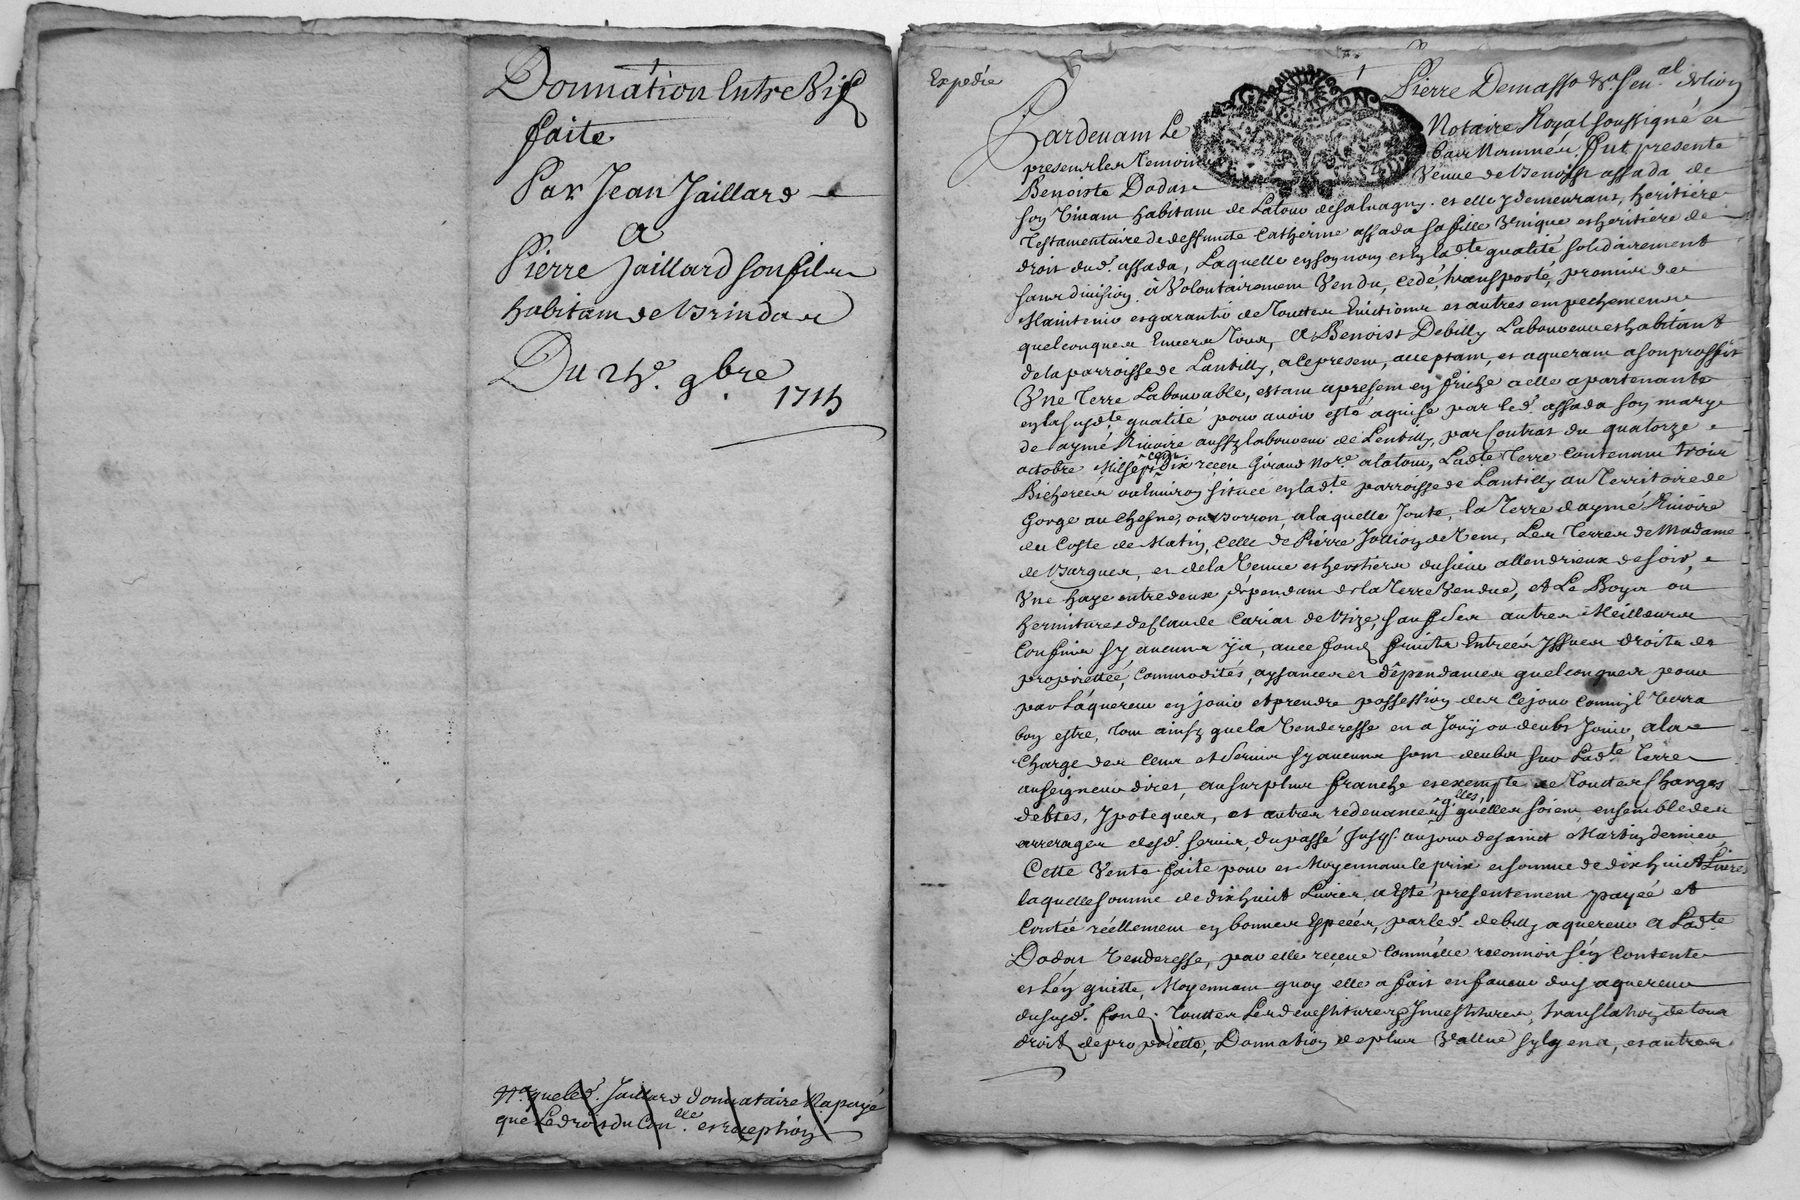 Donnation Entre Vif
faite
Par Jean Jaillard
a
Pierre Jaillard son fils
habitam de Brindas
Du 9bre
1715
Na que led. Jaillard donnataire N'a payé
que Le droit du Con.lle et reception
Expediè
Pierre Demasso Sen.al de Lion
Pardevam Le Notaire Royal soussigné et
presens les Temoins bas Nommés. fut presente
Benoiste Dodat Veuve de Benoist assada de
soy Vivam habitam de Latour desalvagny. et elle y demeurant, heritiere
Testamentaire de deffunte Catherine assada sa fille Vnique et heritiere de
droit dud. assada, Laquelle en soy nom et en lad.te qualité, solidairement
sans division a Volontairement Vendu, cedé, transporté, promis de
Maintenir et garantir de Touttes Evictions et autres empechemens
quelconques Envers Tous, a Benoist Debilly Laboureur et habitant
de la parroisse de Lantilly, a ce present, acceptam, et aqueram a son proffit
Vne Terre Labourable, estam a present en friche a elle apartenante
en la susd.te qualité pour avoir esté aquise par led. assada son mary
de aymé Riuoire aussy laboureur de Lentilly, par Contrat du quatorze
octobre Mil sept cens dix reçeu Giraud No.re a latour, Lad.te Terre Contenam trois
Bicherées ou Environ située en lad.te parroisse de Lantilly au Territoire de
Gorge au Chesne, ou Borron, a laquelle Joute, la Terre d'aymé Riuoire
du Coste de Matin, Celle de Pierre Jullion de Vent, Les Terres de Madame
de Burgues, et de la Veuve et heritiers du sieur allendrieux de soir,
Vne haye entredeux, dépendam de la Terre Vendue, et Le Boys ou
hermitures de Claude Cariat de Bize, sauf Ses autres Meilleurs
Confins sy aucuns y a, avec fond, fruits Entrées Yssues droits de
proprietteé, Commodités, aysances et dêpendances quelconques pour
par L'aquereur en jouir et prendre possession des Ce jour Comm'il Verra
bon estre, Tout ainsy que la Venderesse en a Jouÿ ou deubt Jouir, a la
Charge des Cens et Servis sy aucuns sont deubs sur Lad.te Terre
au seigneur direct, au surplus franche et exempte de Touttes Charges
debtes, Ypoteques, et autres redevances q.lles quelles soient, ensemble des
arrerages desd. servis, du passé Jusq. au jour de saint Martin dernier
Cette Vente faite pour et Moyennam le prix et somme de dix huict Livres
laquelle somme de dix huict Livres a Esté présentement payeé et
Contée réellement en bonnes Espeées, par led. debilly aquereur a Lad.te
Dodat Venderesse, par elle reçeue Comm'elle reconnoit s'en Contente
et L'en quitte, Moyennam quoy elle a fait en faveur dud. aquereur
du susd. fond. Touttes Les devestitures Investitures, translation de tous
droits de propriété, Donnation de plus Vallue sy lyena, et autres